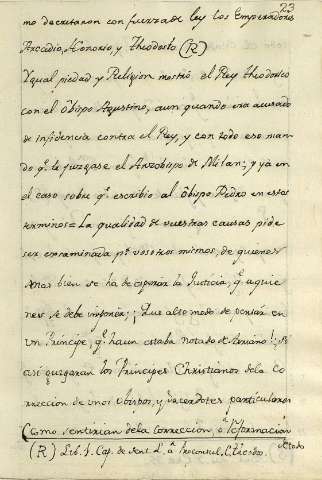 23
mo decretaron con fuerza de ley los Emperadores
Arcadio, Honorio, y Theodosio (R)
Ygual piedad y Religion mostró el Rey Theodorico
con el Obispo Agustino, aun quando era acusado
de infidencia contra el Rey, y con todo eso man-
do q.e le juzgase el Arzobispo de Milan; y ya en
el caso sobre q.e escribio al Obispo Pedro en estos
terminos = La qualidad de vuestras causas pide
ser examinada p.r vosotros mismos, de quienes
mas bien se ha de esperar la Justicia, q.e a quie-
nes se debe imponer; ¡Que alto modo de pensar en
un Principe, q.e haun estaba notado de Arriano! ¡Si
asi juzgaran los Principes Christianos de la Co-
rreccion de unos Obispos, y Sacerdotes particulares
Como sentirian de la Correccion, o Reformacion
de todo
(R) Lib. 1. Cap. de Sent. L. à Proconsul. C. Theodos.